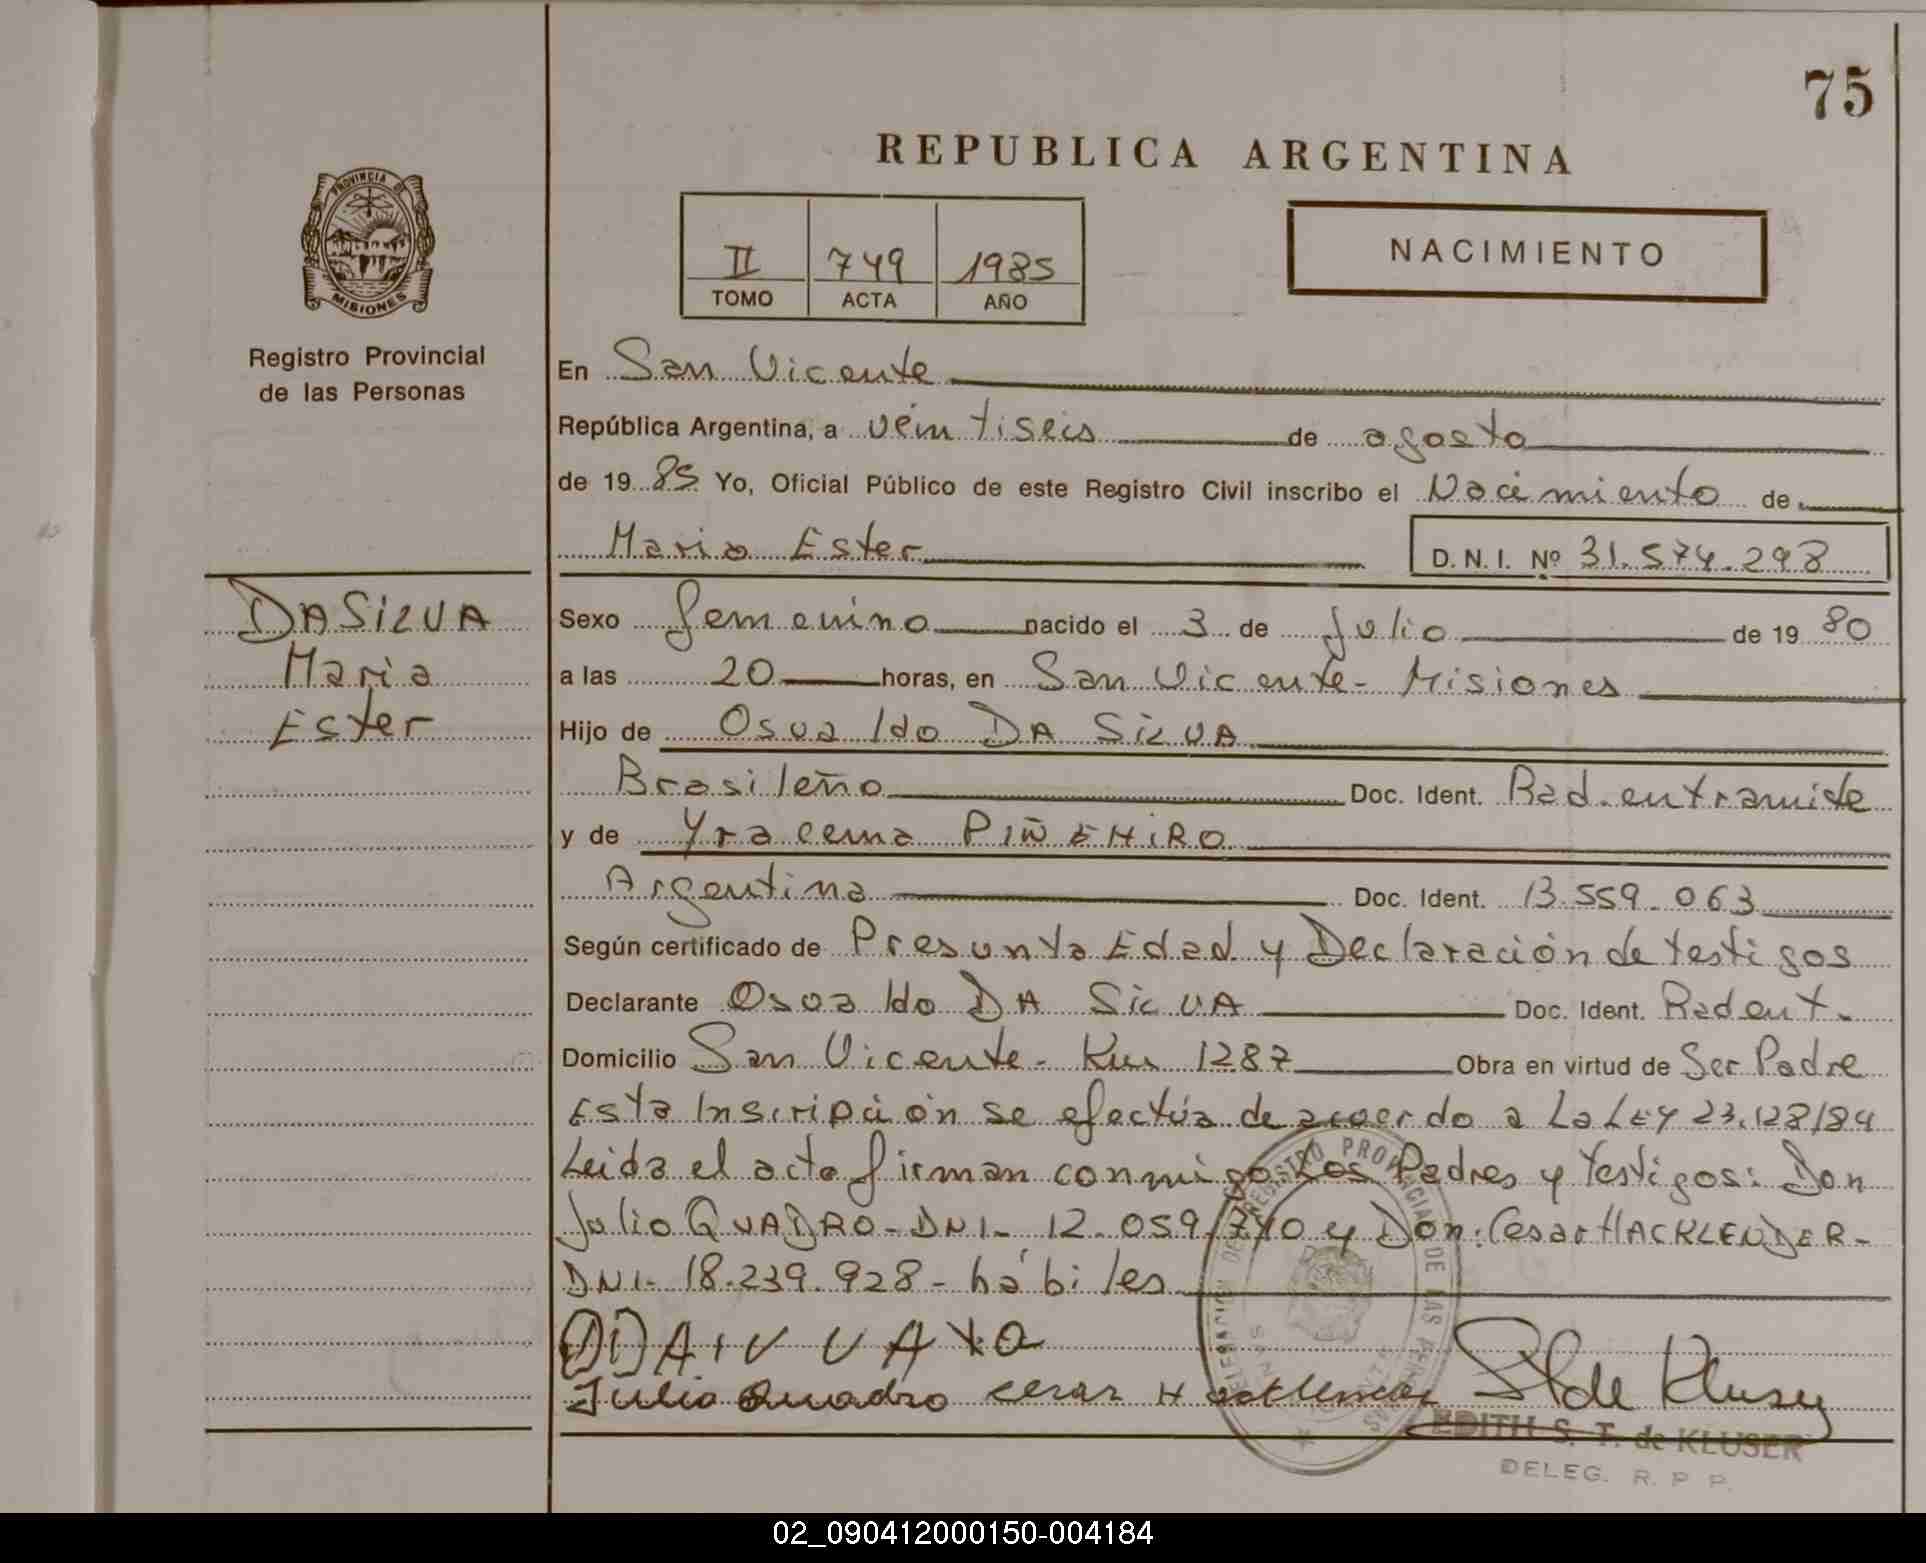 75
REPUBLICA ARGENTINA
PROVINCIA DE
MISIONES
Registro Provincial
de las Personas
II 749 1985
TOMO ACTA AÑO
NACIMIENTO
En San Vicente
República Argentina, a veintiseis de agosto
de 1985 Yo, Oficial Público de este Registro Civil inscribo el Nacimiento de
Maria Ester
D. N. I. Nº 31.574.298
DA SILVA
Maria
Ester
Sexo femenino nacido el 3 de Julio de 1980
a las 20 horas, en San Vicente - Misiones
Hijo de Osvaldo DA SILVA
Brasileño Doc. Ident. Rad. en tramite
y de Yracema PIÑEHIRO
Argentina Doc. Ident. 13.559.063
Según certificado de Presunta Edad y Declaración de testigos
Declarante Osvaldo DA SILVA Doc. Ident. Rad en t.
Domicilio San Vicente - Km 1287 Obra en virtud de Ser Padre
Esta Inscripción se efectúa de acuerdo a La LEY 23.128/84
Leida el acta firman conmigo Los Padres y Testigos: Don
Julio QUADRO - DNI - 12.059.740 y Don: Cesar HACKLENDER -
DNI - 18.239.928 - hábiles
Julio Quadro cesar
S T de Kluser
EDITH S. T. de KLUSER
DELEG. R. P. P.
REGISTRO PROVINCIAL DE LAS PERSONAS
02_090412000150-004184